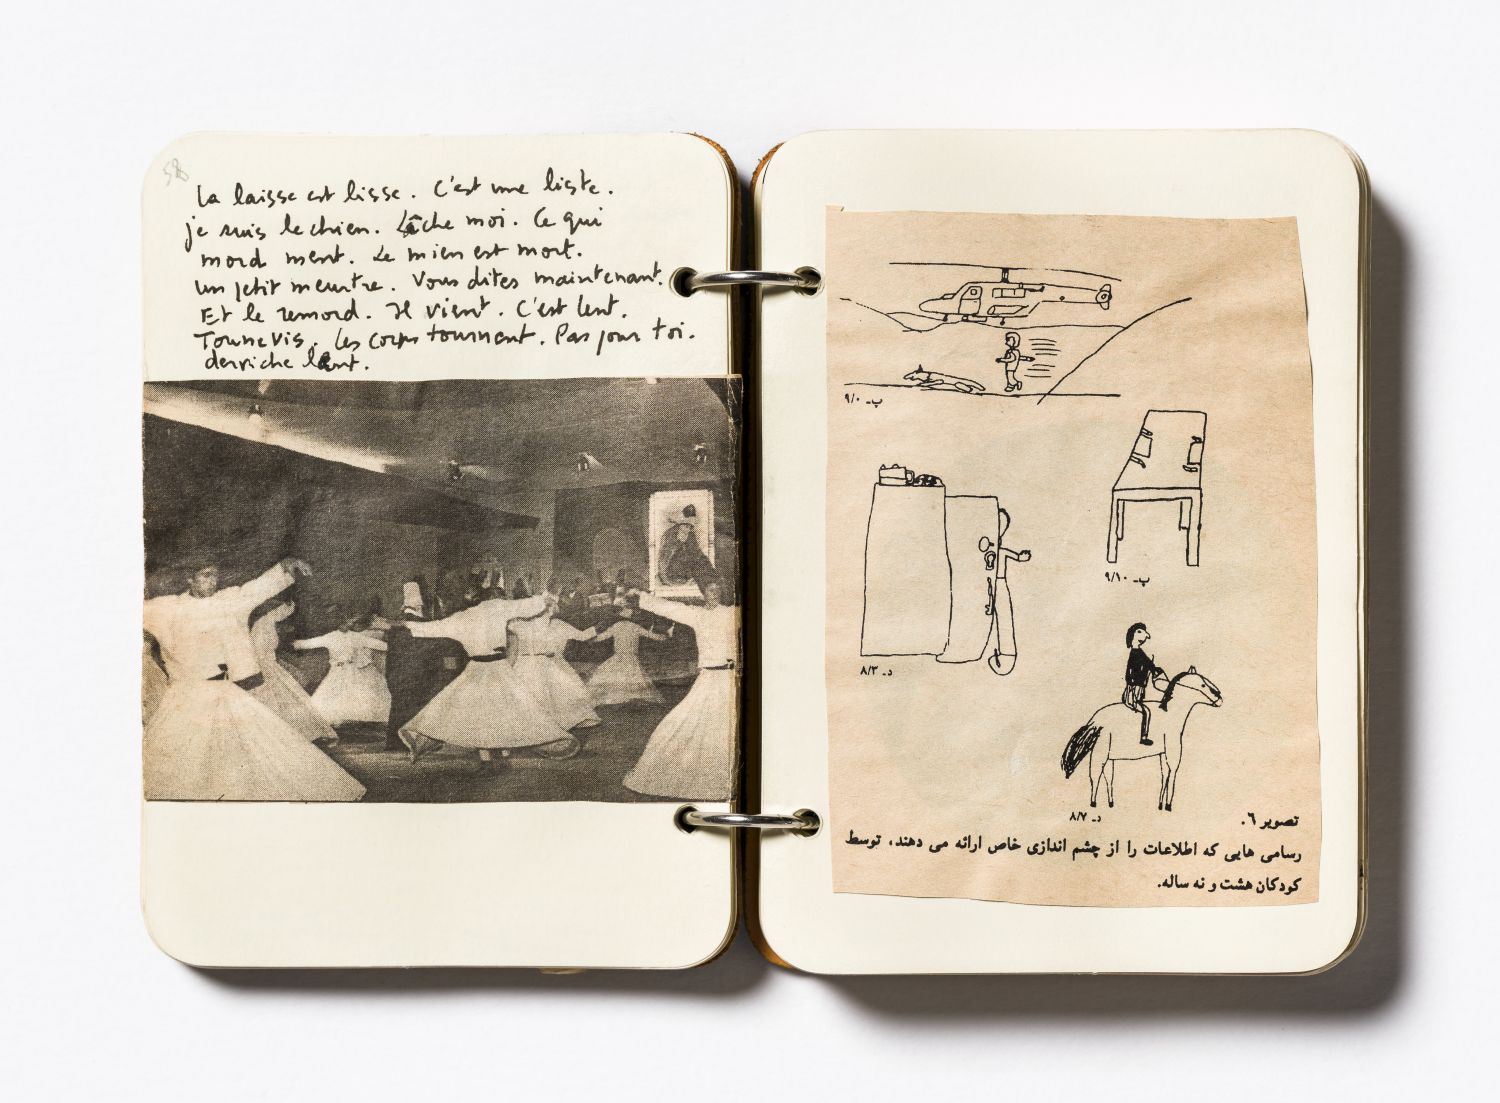 La laisse est lisse. C'est une liste.
je suis le chien. Lâche moi. Ce qui
mord ment. Le mien est mort.
un petit meurtre. Vous dites maintenant.
Et le remord. Il vient. C'est lent.
Tournevis. Les corps tournent. Pas pour toi.
derviche lent.
پ- ۹/۰
پ- ۹/۱۰
د- ۸/۳
د- ۸/۷
تصویر ٦.
رسامی هایی که اطلاعات را از چشم اندازی خاص ارائه می دهند، توسط
کودکان هشت و نه ساله.